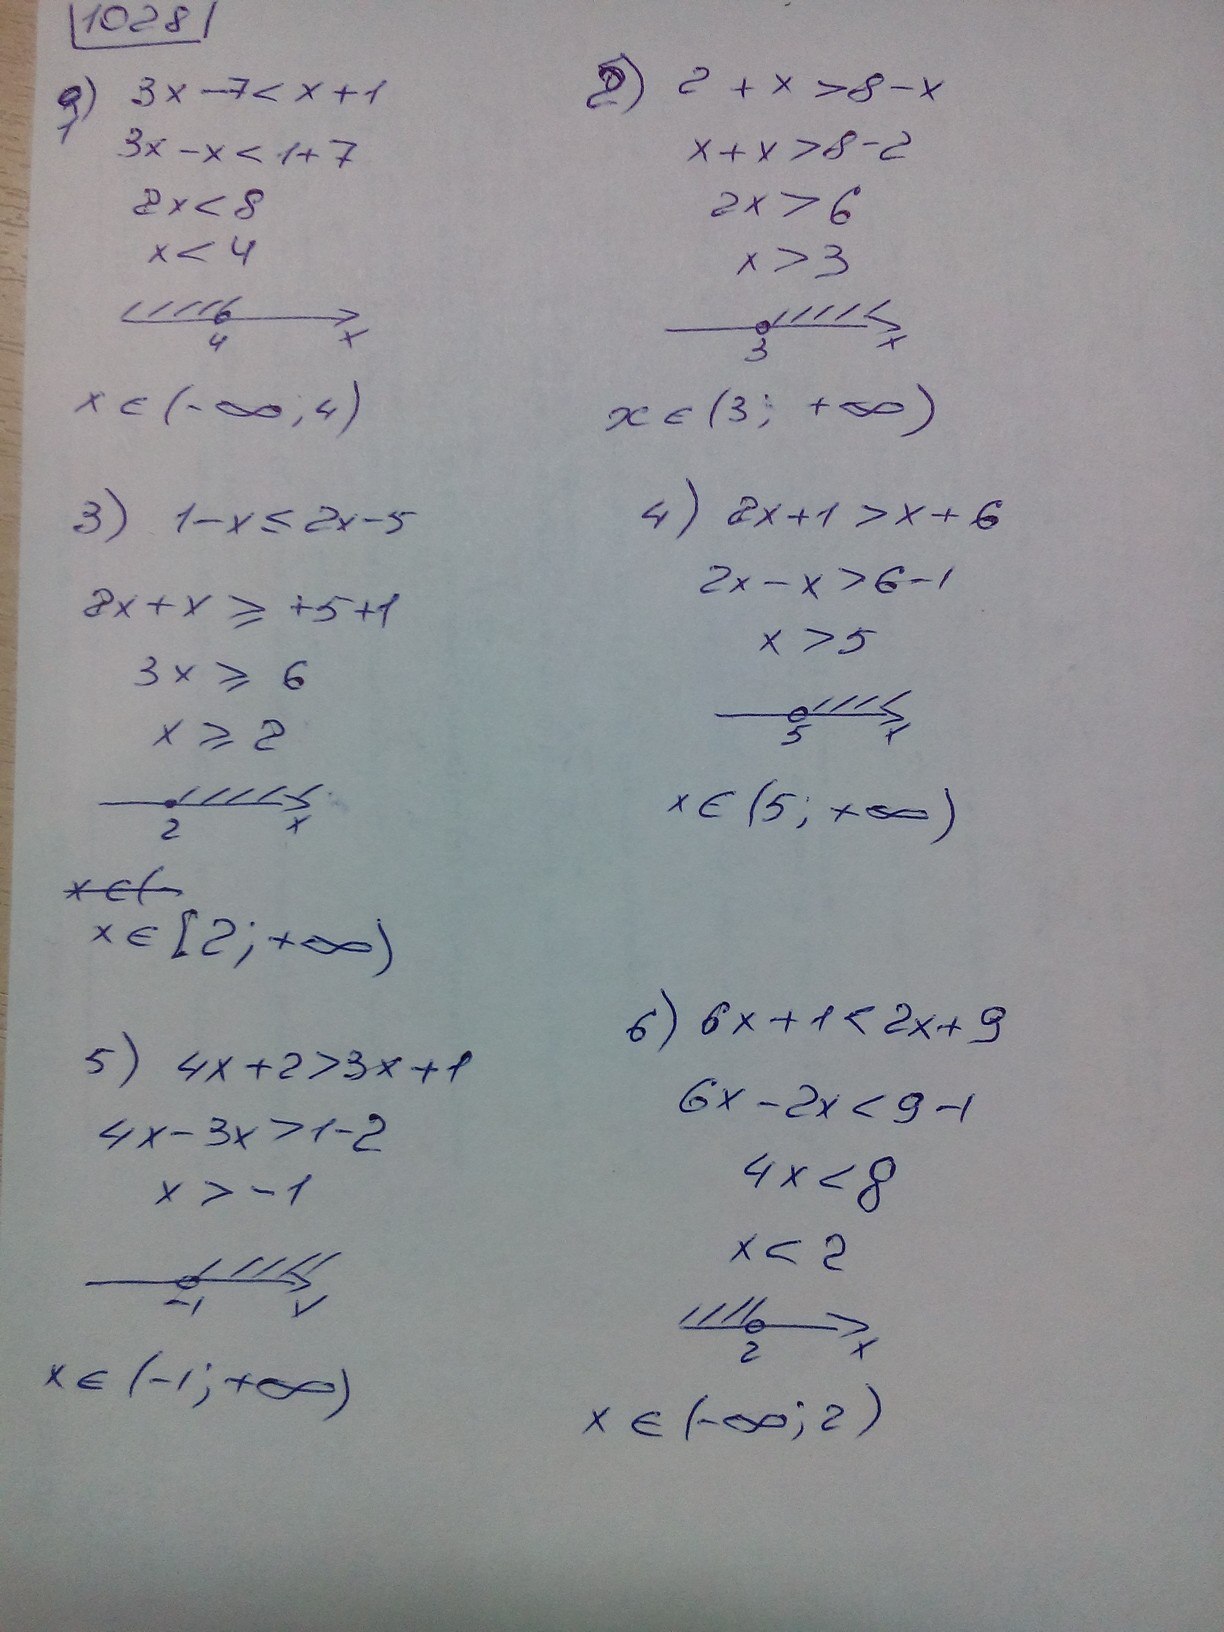 1028
1) 3x-7<x+1
3x-x<1+7
2x<8
x<4
4 x
x∈(-∞;4)
2) 2+x>8-x
x+x>8-2
2x>6
x>3
3 x
x∈(3; +∞)
3) 1-x≤2x-5
2x+x≥+5+1
3x≥6
x≥2
2 x
x∈(-
x∈[2;+∞)
4) 2x+1>x+6
2x-x>6-1
x>5
5 x
x∈(5;+∞)
5) 4x+2>3x+1
4x-3x>1-2
x>-1
-1 x
x∈(-1;+∞)
6) 6x+1<2x+9
6x-2x<9-1
4x<8
x<2
2 x
x∈(-∞;2)